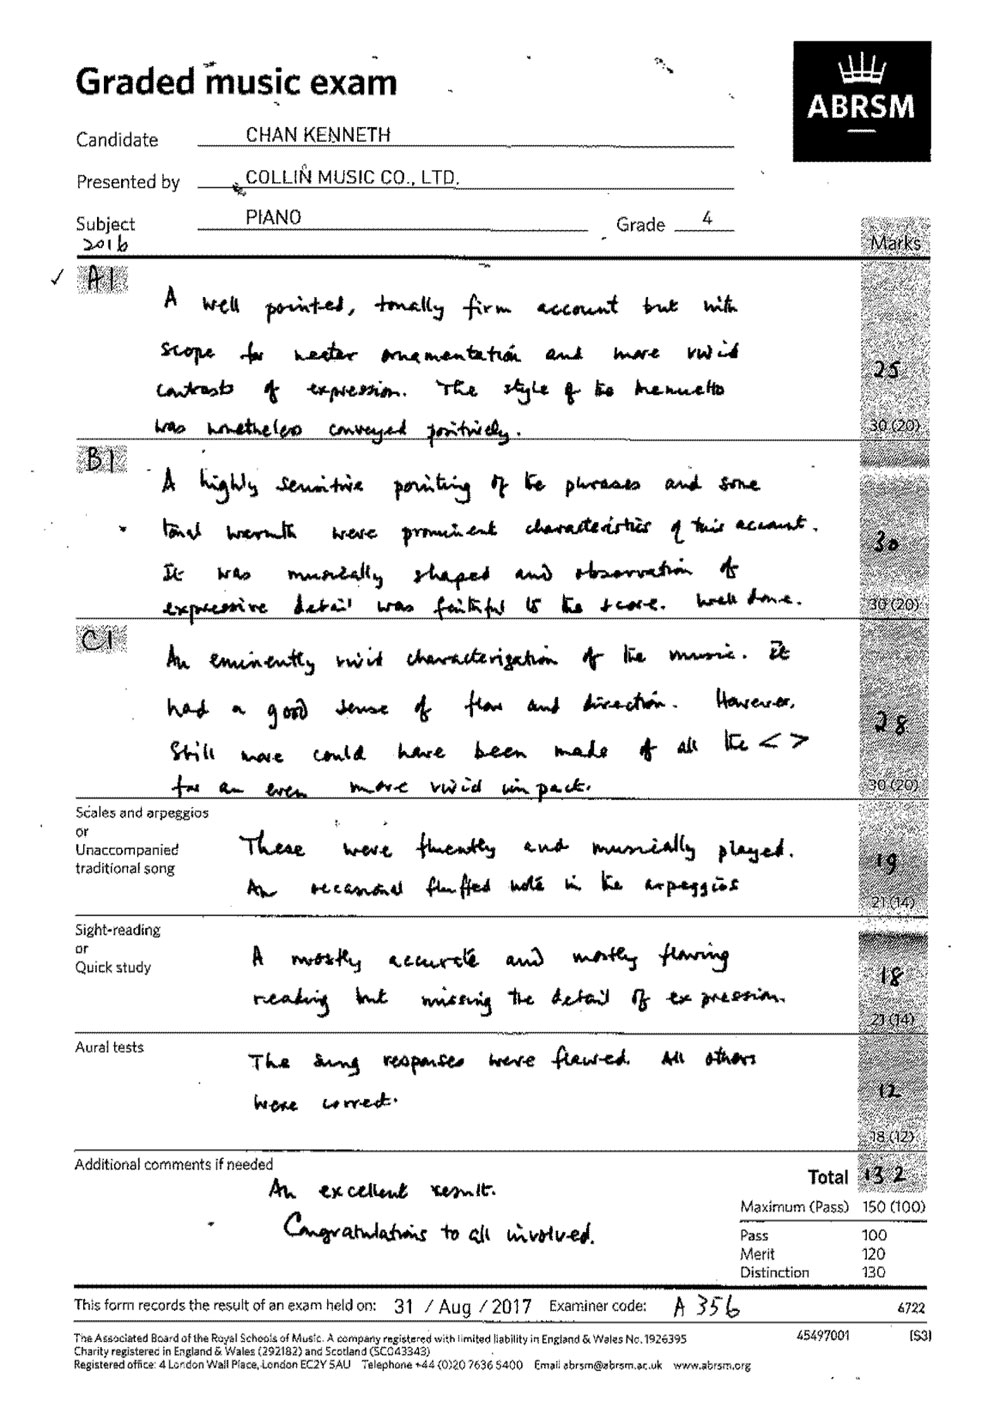 Graded music exam
ABRSM
Candidate CHAN KENNETH
Presented by COLLIN MUSIC CO., LTD.
Subject PIANO Grade 4
2016 Marks
✓ A1
A well pointed, tonally firm account but with
scope for neater ornamentation and more vivid
contrasts of expression. The style of the Menuetto 25
was nonetheless conveyed positively. 30 (20)
B1
A highly sensitive pointing of the phrases and some
tonal warmth were prominent characteristics of this account.
It was musically shaped and observation of 30
expressive detail was faithful to the score. Well done. 30 (20)
C1
An eminently vivid characterization of the music. It
had a good sense of flow and direction. However,
still more could have been made of all the < > 28
for an even more vivid impact. 30 (20)
Scales and arpeggios
or
Unaccompanied
traditional song
These were fluently and musically played. 19
An occasional fluffed note in the arpeggios 21 (14)
Sight-reading
or
Quick study
A mostly accurate and mostly flowing 18
reading but missing the detail of expression. 21 (14)
Aural tests
The sung responses were flawed. All others
were correct. 12
18 (12)
Additional comments if needed
An excellent result.
Congratulations to all involved.
Total 132
Maximum (Pass) 150 (100)
Pass 100
Merit 120
Distinction 130
This form records the result of an exam held on: 31 / Aug / 2017 Examiner code: A 356 6722
The Associated Board of the Royal Schools of Music. A company registered with limited liability in England & Wales No. 1926395 45497001 [S3]
Charity registered in England & Wales (292182) and Scotland (SC043343)
Registered office: 4 London Wall Place, London EC2Y 5AU Telephone +44 (0)20 7636 5400 Email abrsm@abrsm.ac.uk www.abrsm.org